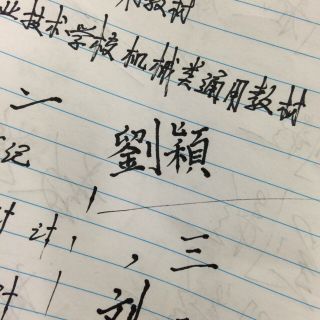 用教材
业技术学校机械类通用教材
二
劉穎
记
计计,,三
计
刘